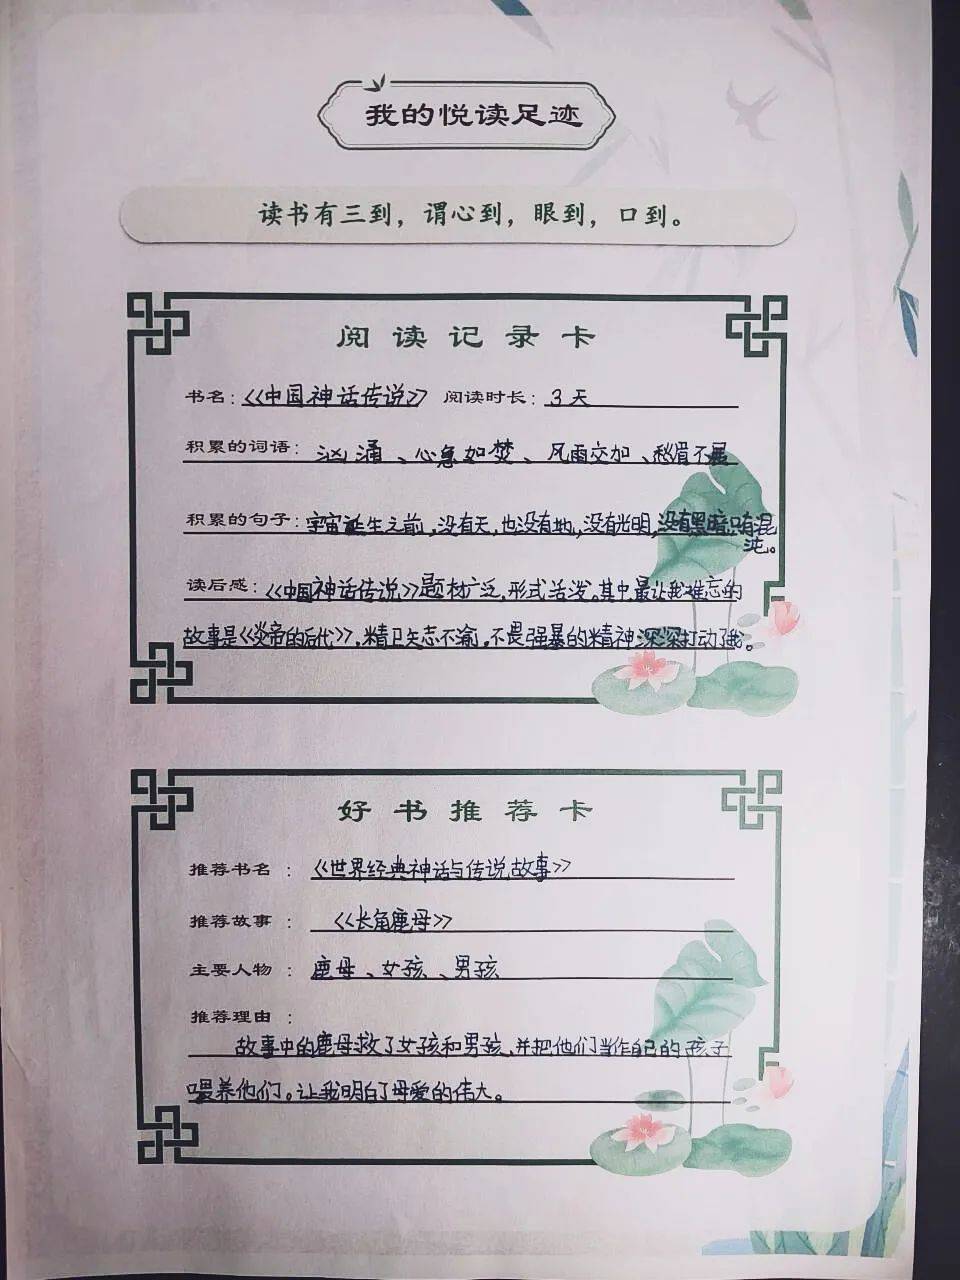 我的悦读足迹
读书有三到，谓心到，眼到，口到。
阅读记录卡
书名：《中国神话传说》 阅读时长：3天
积累的词语：汹涌、心急如焚、风雨交加、愁眉不展
积累的句子：宇宙诞生之前，没有天，也没有地，没有光明，没有黑暗只有混
沌。
读后感：《中国神话传说》题材广泛，形式活泼。其中，最让我难忘的
故事是《炎帝的后代》，精卫矢志不渝，不畏强暴的精神深深打动了我。
好书推荐卡
推荐书名：《世界经典神话与传说故事》
推荐故事：《长角鹿母》
主要人物：鹿母、女孩、男孩
推荐理由：
故事中的鹿母救了女孩和男孩，并把他们当作自己的孩子
喂养他们。让我明白了母爱的伟大。